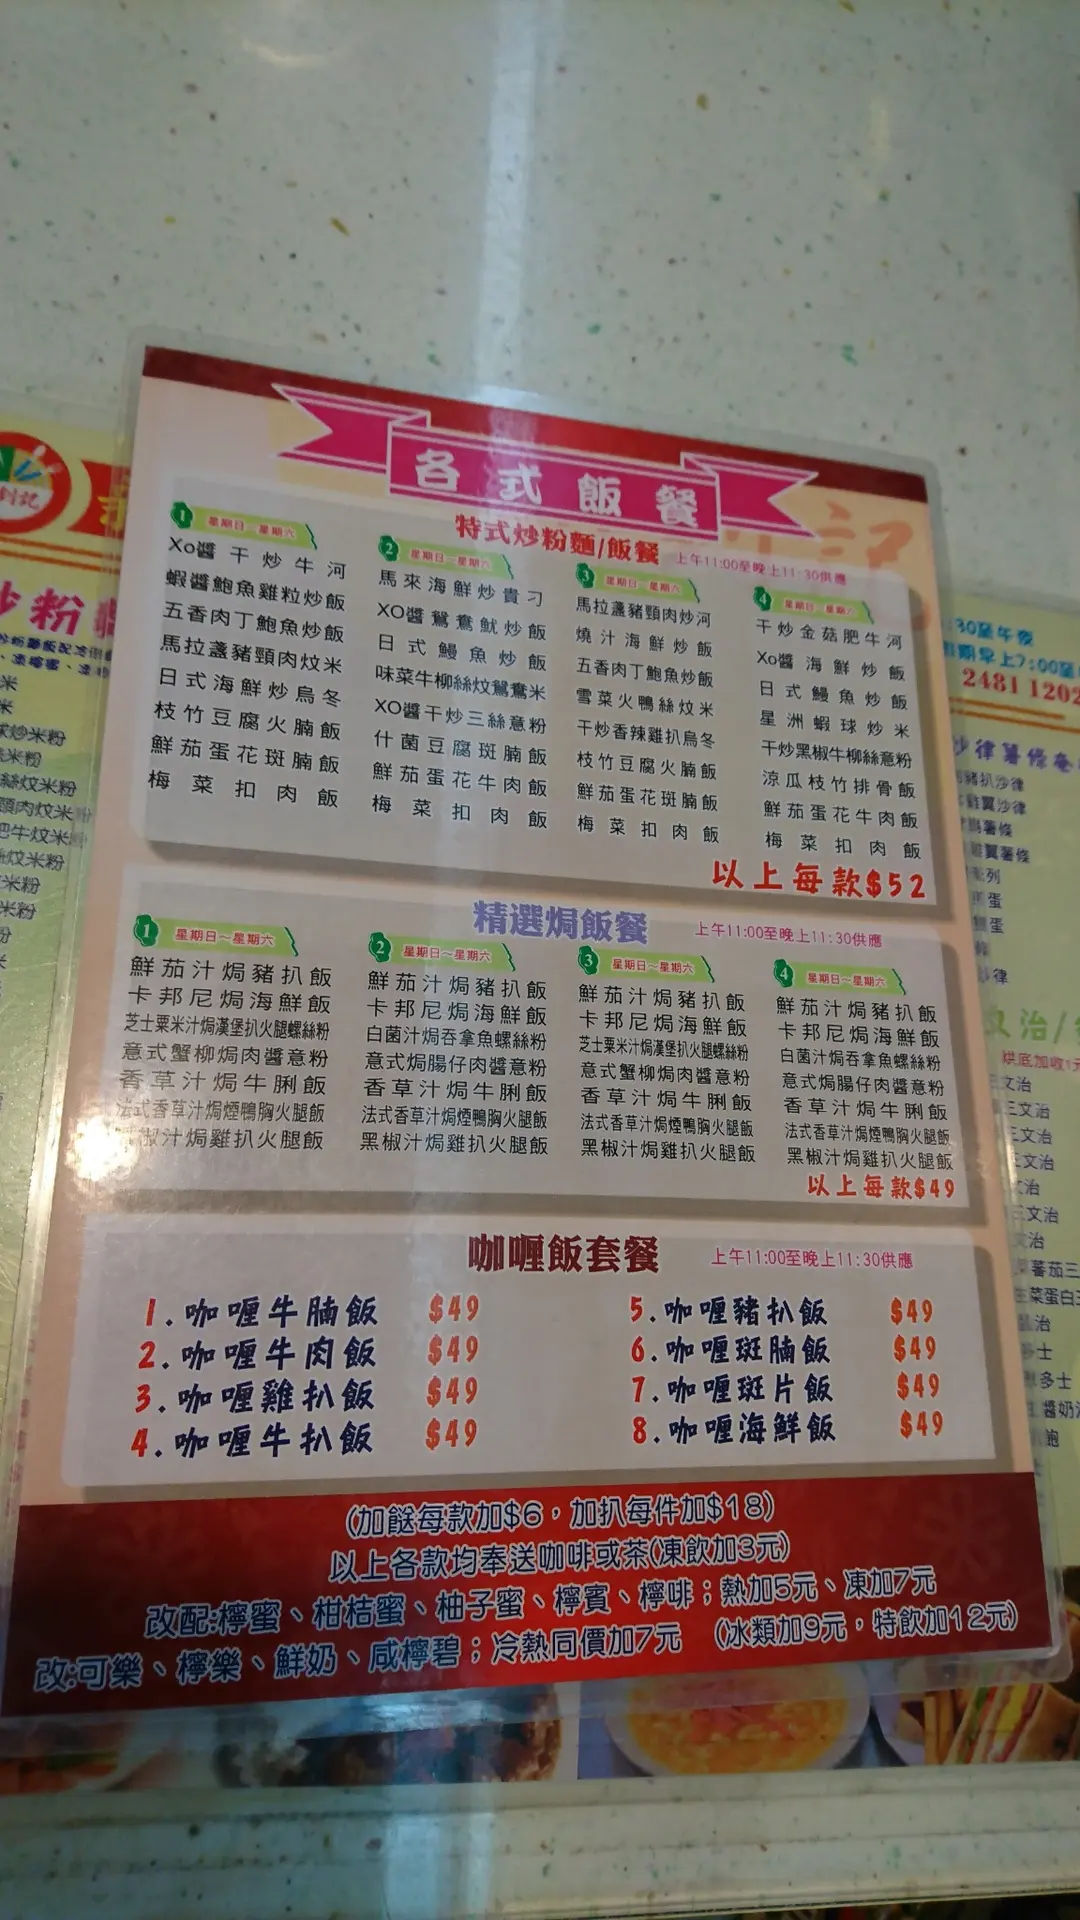 各式飯餐
特式炒粉麵/飯餐 上午11:00至晚上11:30供應
1 星期日~星期六
Xo醬干炒牛河
蝦醬鮑魚雞粒炒飯
五香肉丁鮑魚炒飯
馬拉盞豬頸肉炆米
日式海鮮炒烏冬
枝竹豆腐火腩飯
鮮茄蛋花斑腩飯
梅菜扣肉飯
2 星期日~星期六
馬來海鮮炒貴刁
XO醬鴛鴦魷炒飯
日式鰻魚炒飯
味菜牛柳絲炆鴛鴦米
XO醬干炒三絲意粉
什菌豆腐斑腩飯
鮮茄蛋花牛肉飯
梅菜扣肉飯
3 星期日~星期六
馬拉盞豬頸肉炒河
燒汁海鮮炒飯
五香肉丁鮑魚炒飯
雪菜火鴨絲炆米
干炒香辣雞扒烏冬
枝竹豆腐火腩飯
鮮茄蛋花斑腩飯
梅菜扣肉飯
4 星期日~星期六
干炒金菇肥牛河
Xo醬海鮮炒飯
日式鰻魚炒飯
星洲蝦球炒米
干炒黑椒牛柳絲意粉
涼瓜枝竹排骨飯
鮮茄蛋花牛肉飯
梅菜扣肉飯
以上每款$52
精選焗飯餐 上午11:00至晚上11:30供應
1 星期日~星期六
鮮茄汁焗豬扒飯
卡邦尼焗海鮮飯
芝士粟米汁焗漢堡扒火腿螺絲粉
意式蟹柳焗肉醬意粉
香草汁焗牛脷飯
法式香草汁焗煙鴨胸火腿飯
椒汁焗雞扒火腿飯
2 星期日~星期六
鮮茄汁焗豬扒飯
卡邦尼焗海鮮飯
白菌汁焗吞拿魚螺絲粉
意式焗腸仔肉醬意粉
香草汁焗牛脷飯
法式香草汁焗煙鴨胸火腿飯
黑椒汁焗雞扒火腿飯
3 星期日~星期六
鮮茄汁焗豬扒飯
卡邦尼焗海鮮飯
芝士粟米汁焗漢堡扒火腿螺絲粉
意式蟹柳焗肉醬意粉
香草汁焗牛脷飯
法式香草汁焗煙鴨胸火腿飯
黑椒汁焗雞扒火腿飯
4 星期日~星期六
鮮茄汁焗豬扒飯
卡邦尼焗海鮮飯
白菌汁焗吞拿魚螺絲粉
意式焗腸仔肉醬意粉
香草汁焗牛脷飯
法式香草汁焗煙鴨胸火腿飯
黑椒汁焗雞扒火腿飯
以上每款$49
咖喱飯套餐 上午11:00至晚上11:30供應
1.咖喱牛腩飯 $49
2.咖喱牛肉飯 $49
3.咖喱雞扒飯 $49
4.咖喱牛扒飯 $49
5.咖喱豬扒飯 $49
6.咖喱斑腩飯 $49
7.咖喱斑片飯 $49
8.咖喱海鮮飯 $49
(加餸每款加$6，加扒每件加$18)
以上各款均奉送咖啡或茶(凍飲加3元)
改配:檸蜜、柑桔蜜、柚子蜜、檸賓、檸啡；熱加5元、凍加7元
改:可樂、檸樂、鮮奶、咸檸碧；冷熱同價加7元 (冰類加9元，特飲加12元)
炒粉
米
米
球炒米粉
米粉
絲炆米粉
頸肉炆米
肥牛炆米粉
炆米粉
米粉
米粉
粉
:30至午夜
期早上7:00至
2481 1202
沙律薯條
豬扒沙律
雞翼沙律
薯條
雞翼薯條
列
蛋
蛋
律
治/
烘底加收1元
文治
三文治
三文治
三文治
文治
三文治
文治
蕃茄三
菜蛋白三
治
多士
多士
醬奶
飽